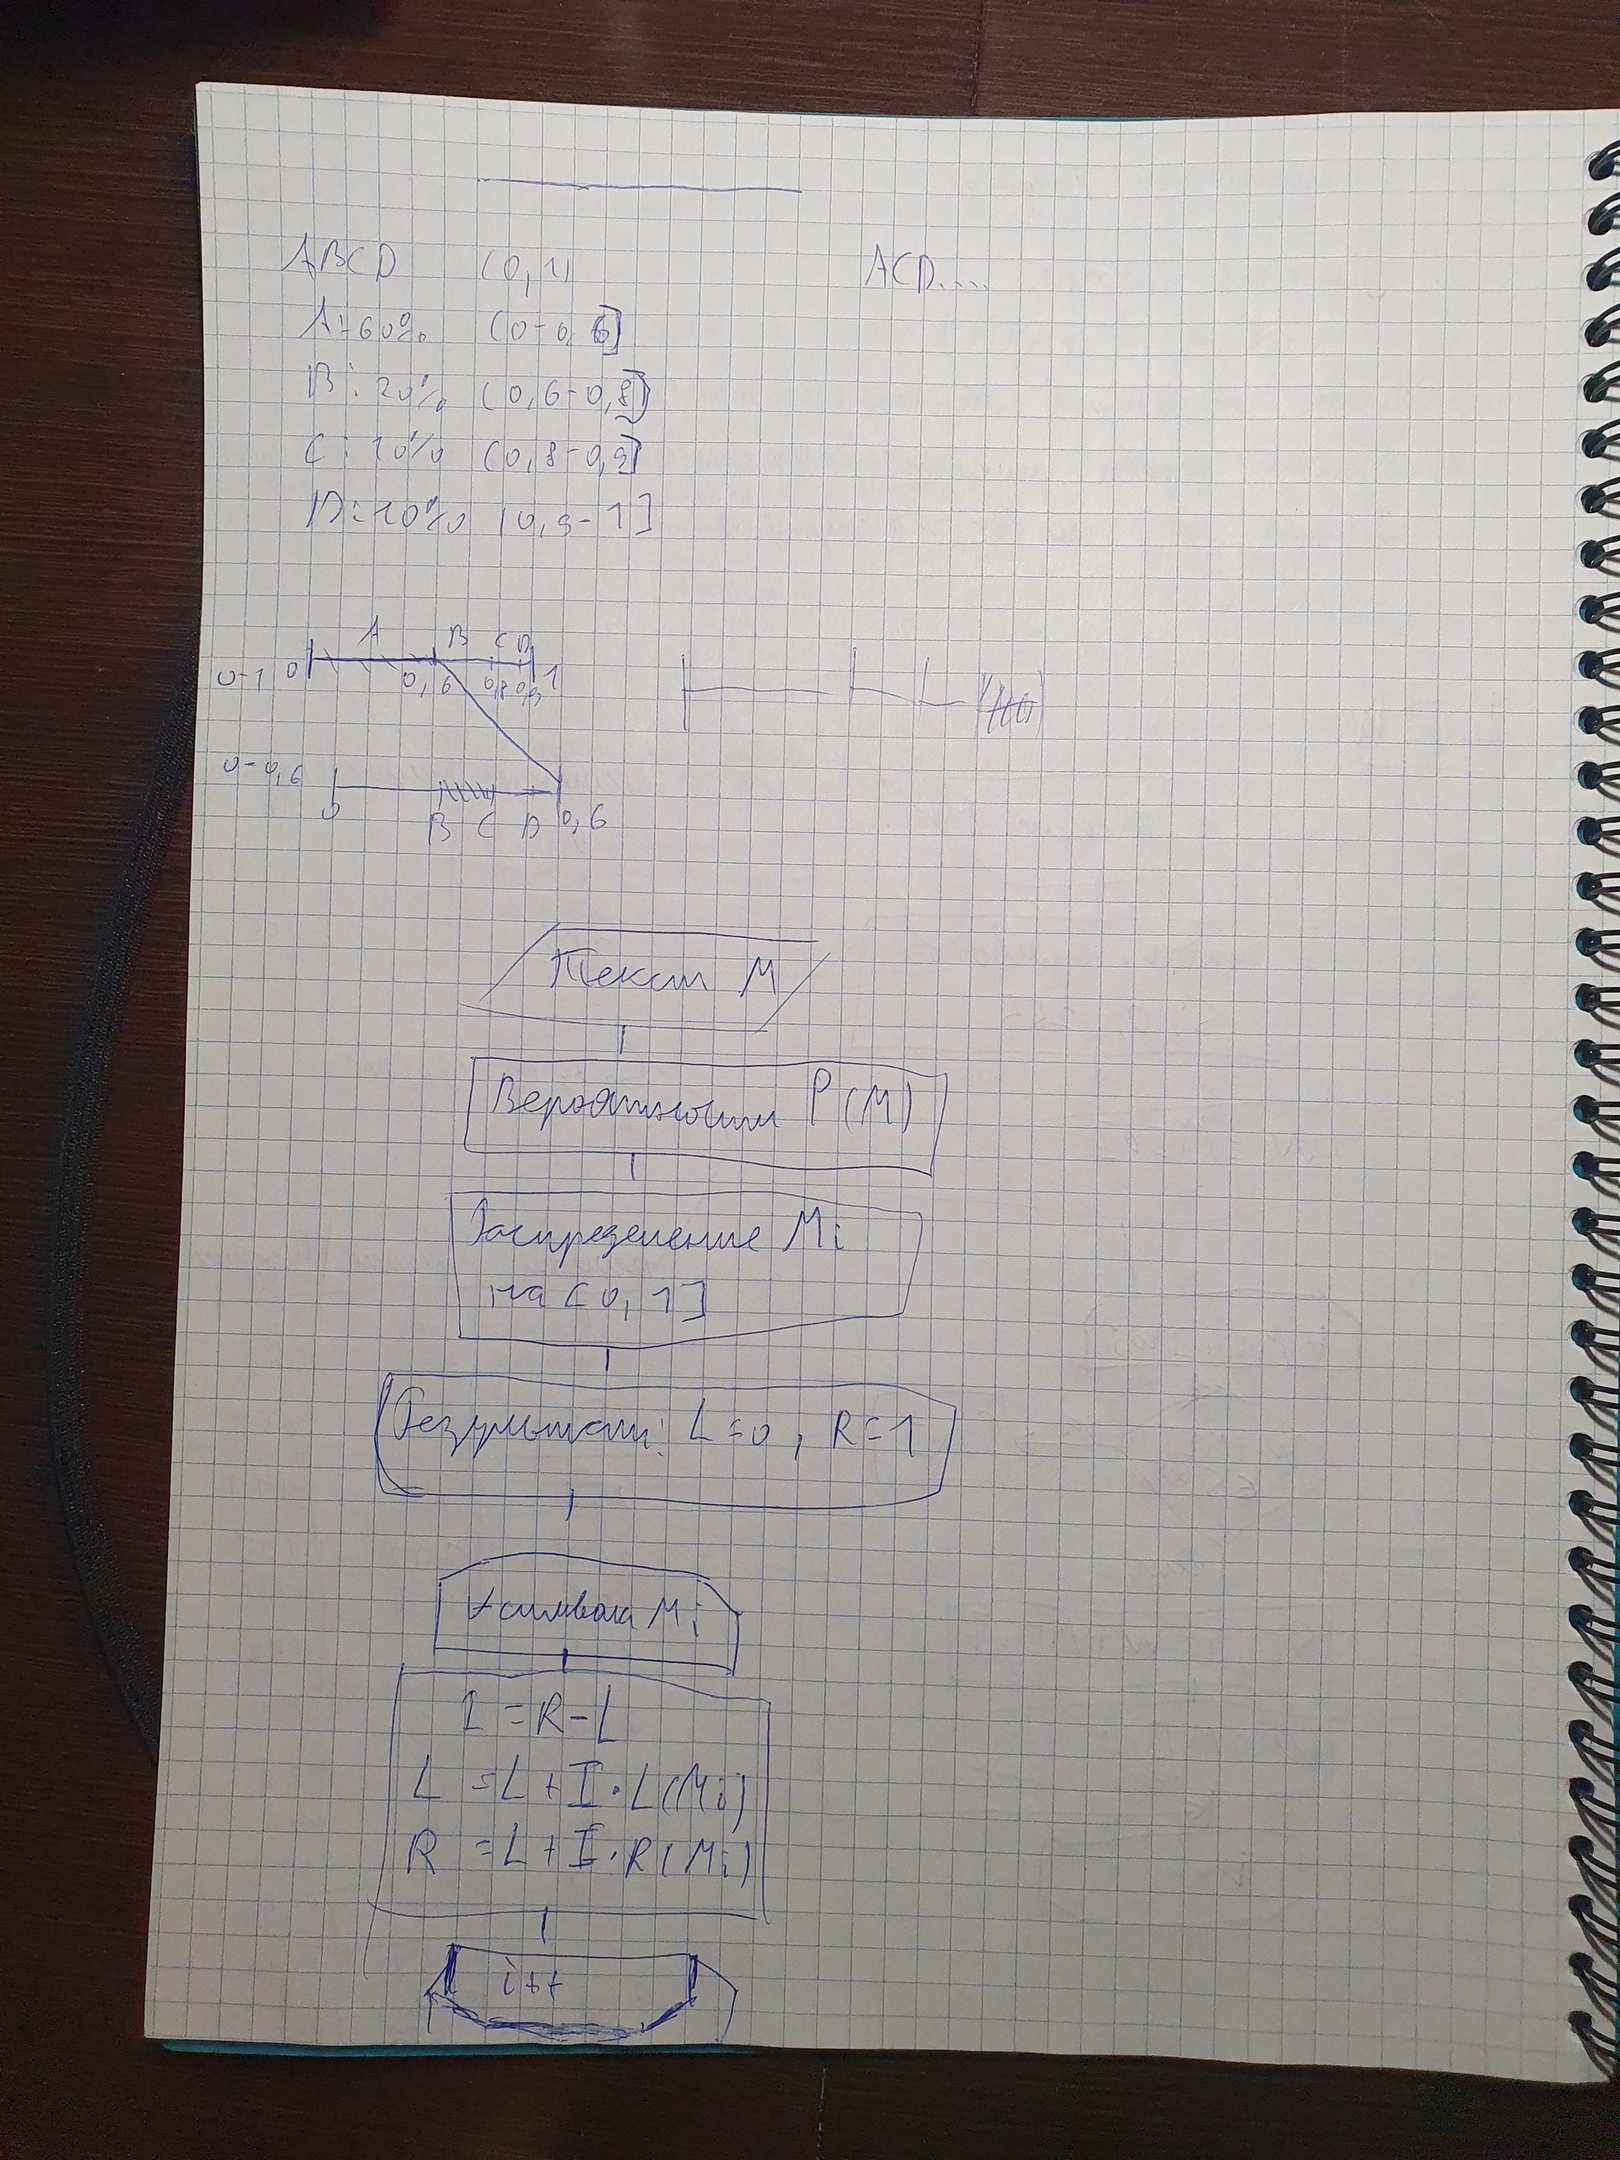 ABCD (0,1)
ACD....
A: 60% (0-0,6]
B: 20% (0,6-0,8]
C: 10% (0,8-0,9]
D: 10% (0,9-1]
A B C D
0-1 0 0,6 0,8 0,9 1
0-0,6
0 B C D 0,6
Текст M
Вероятности P(M)
Распределение Mi
на [0, 1]
Результат: L=0, R=1
∀ символа Mi
I = R-L
L = L + I·L(Mi)
R = L + I·R(Mi)
i++